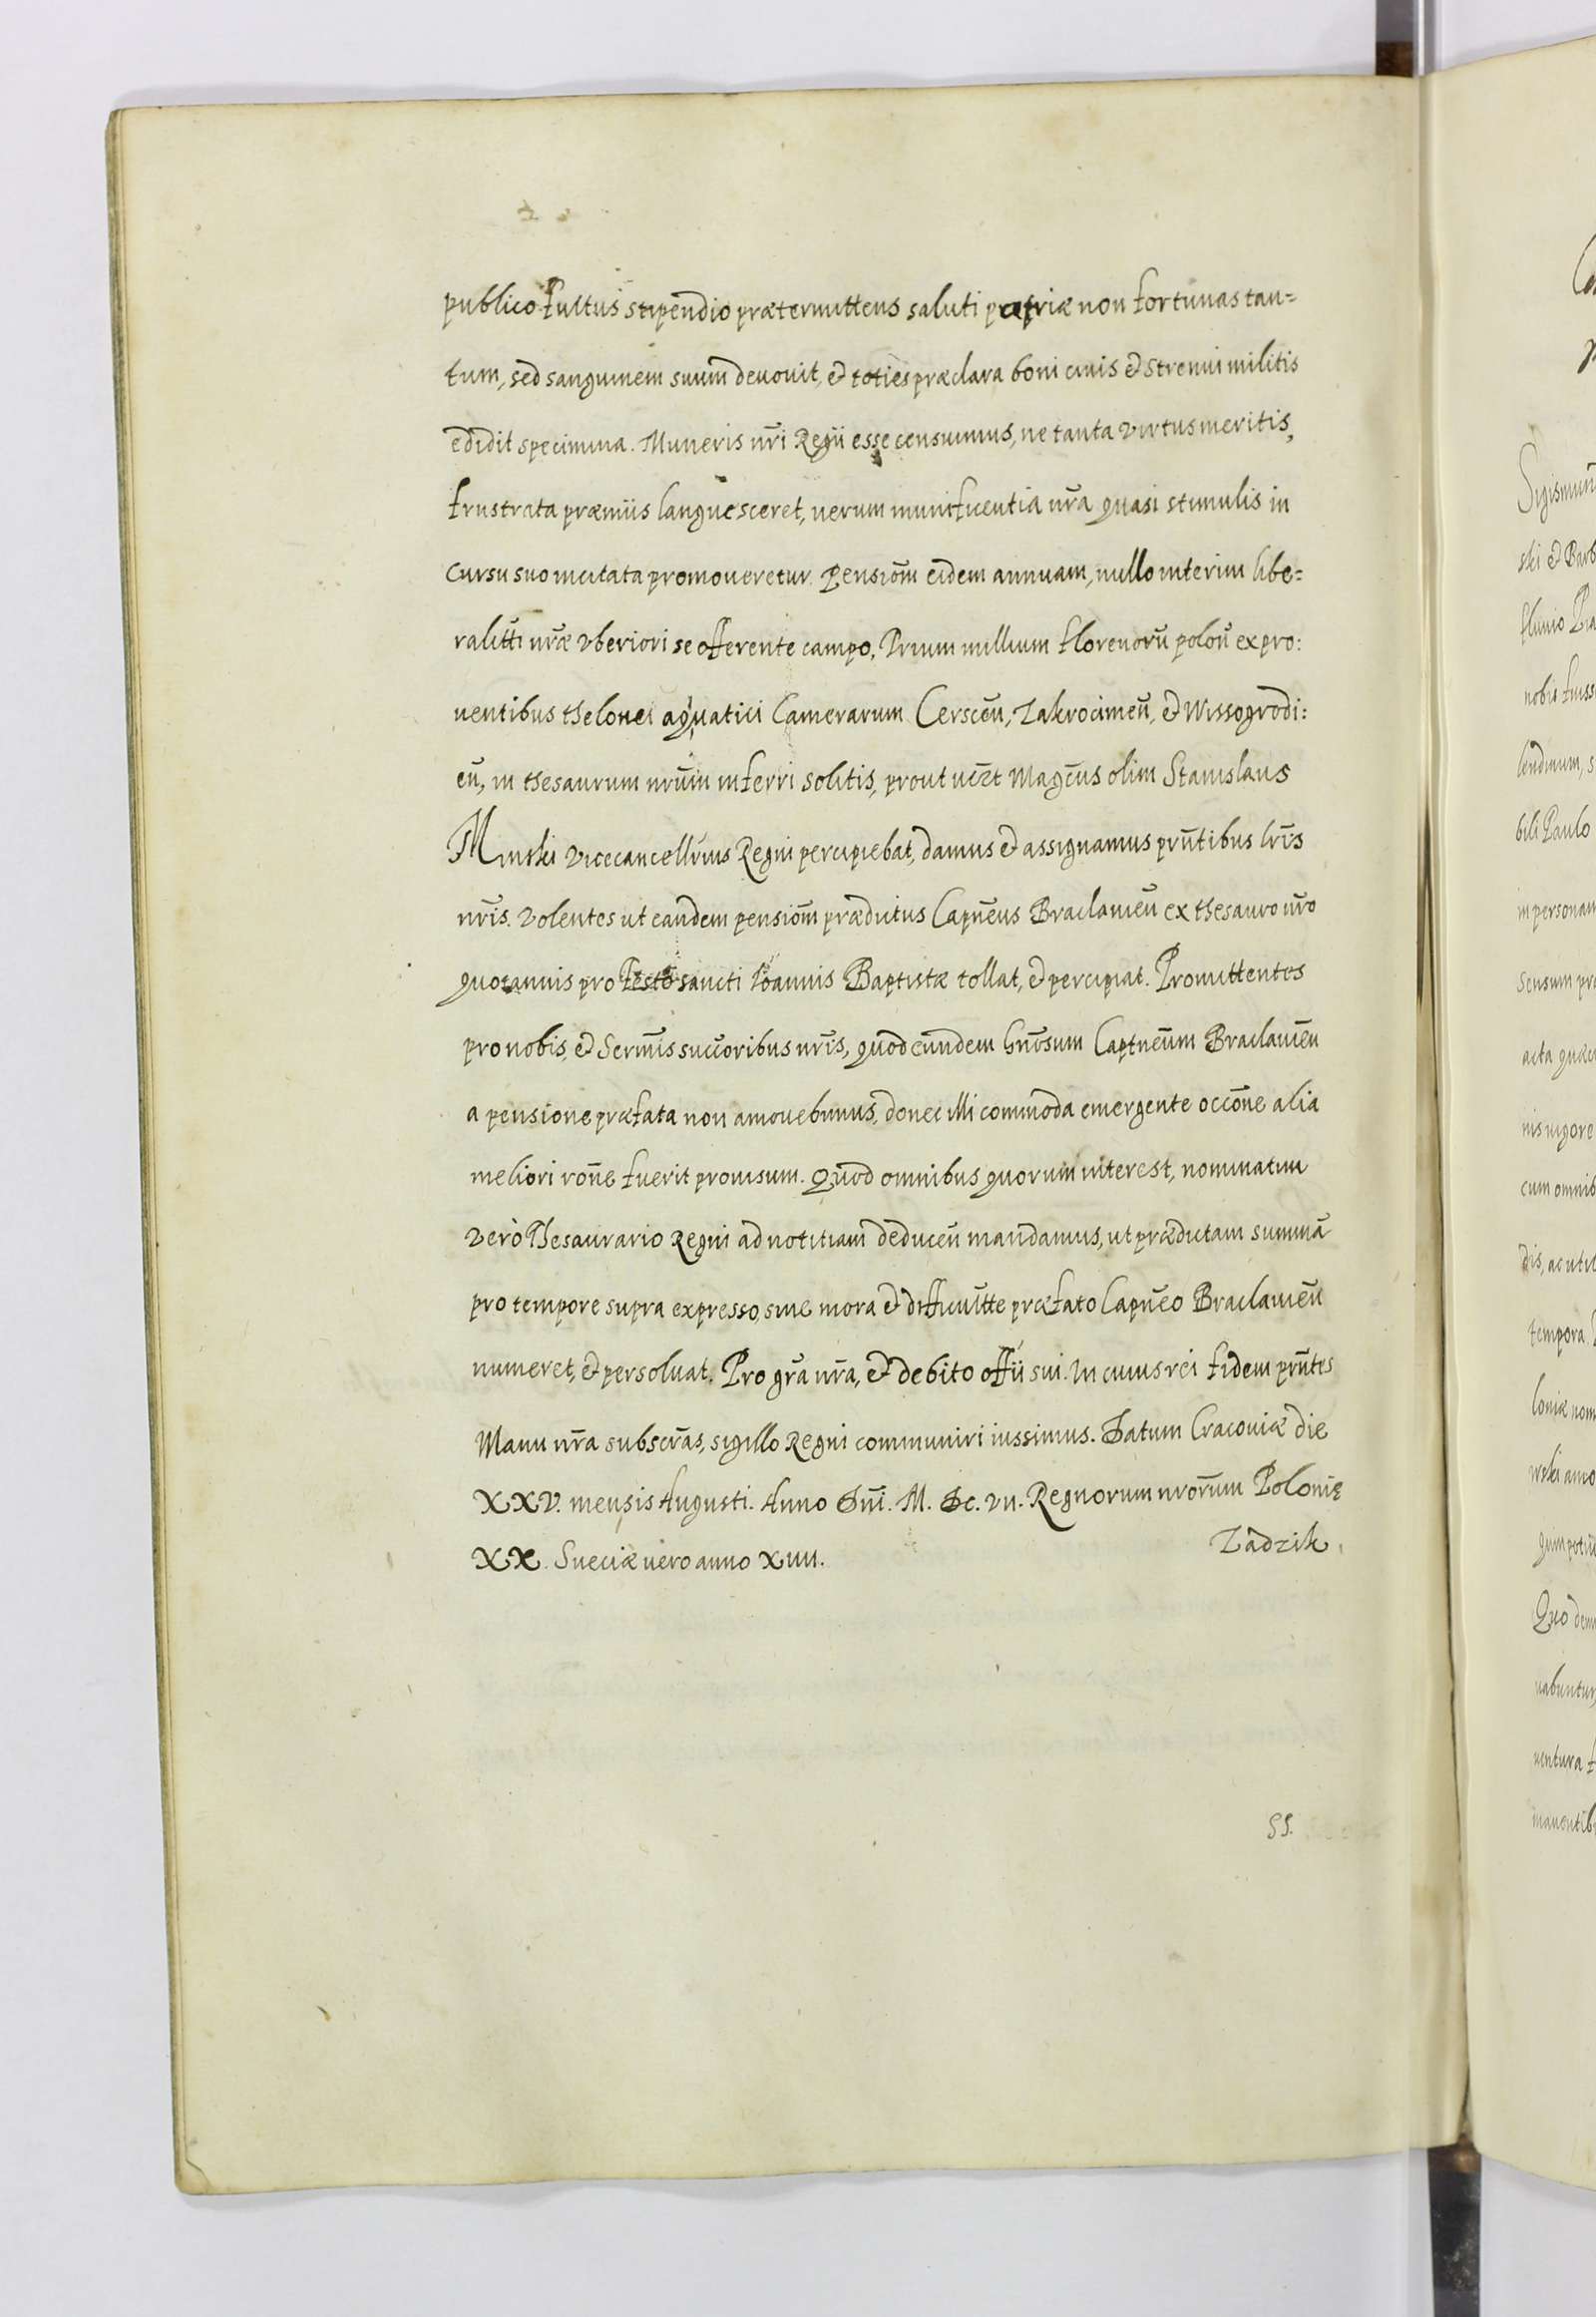 publico fultus stipendio prætermittens saluti patriæ non fortunas tan=
tum, sed sanguinem suum deuouit, et toties præclara boni ciuis et strenui militis
edidit specimina. Muneris nr̄i Regii esse censuimus, ne tanta virtus meritis,
frustrata præmiis languesceret, uerum munificentia nr̄a quasi stimulis in
cursu suo incitata promoueretur. Pensiōm eidem annuam, nullo interim libe=
ralitt̄i nr̄æ vberiori se offerente campo, Trium millium florenorū polon̄ ex pro:
uentibus thelonei aquatici Camerarum Cerscēn, Zakrocimen̄, et Wissogrodi:
en̄, in thesaurum nrūm inferri solitis, prout uīzt Magc̄us olim Stanislaus
Minski vicecancellr̄ius Regni percipiebat, damus et assignamus prn̄tibus lrīs
nrīs. Volentes ut eandem pensiōm prædictus Capnēus Braclauien̄ ex thesauro nr̄o
quotannis pro Festo sancti Ioannis Baptistæ tollat, et percipiat. Promittentes
pro nobis, et Serm̄is succ̄oribus nrīs, quod eundem Gnōsum Captnēum Braclauiēn
a pensione præfata non amouebimus, donec illi commoda emergente occōne alia
meliori roñe fuerit prouisum. Quod omnibus quorum interest, nominatim
verò Thesaurario Regni ad notitiam deducen̄ mandamus, ut prædictam summā
pro tempore supra expresso, sine mora et difficultt̄e præfato Capnēo Braclauiēn
numeret, et persoluat. Pro grā nr̄a, et debito offīi sui. In cuius rei fidem prn̄tes
Manu nr̄a subscrās, sigillo Regni communiri iussimus. Datum Cracouiæ die
XXV. mensis Augusti. Anno Dn̄i. M. Dc. vii. Regnorum nrōrum Polonię
XX. Sueciæ uero anno Xiiii.
Zadzik
55.
Sigismun
ski et Barb
fluuio
nobis fuiss
bili Paulo
in personam
sensum pro
acta quæc
nis uigore
cum omnib
dis, ac util
tempora
loniæ nom
uabuntur,
uentura f
manentib